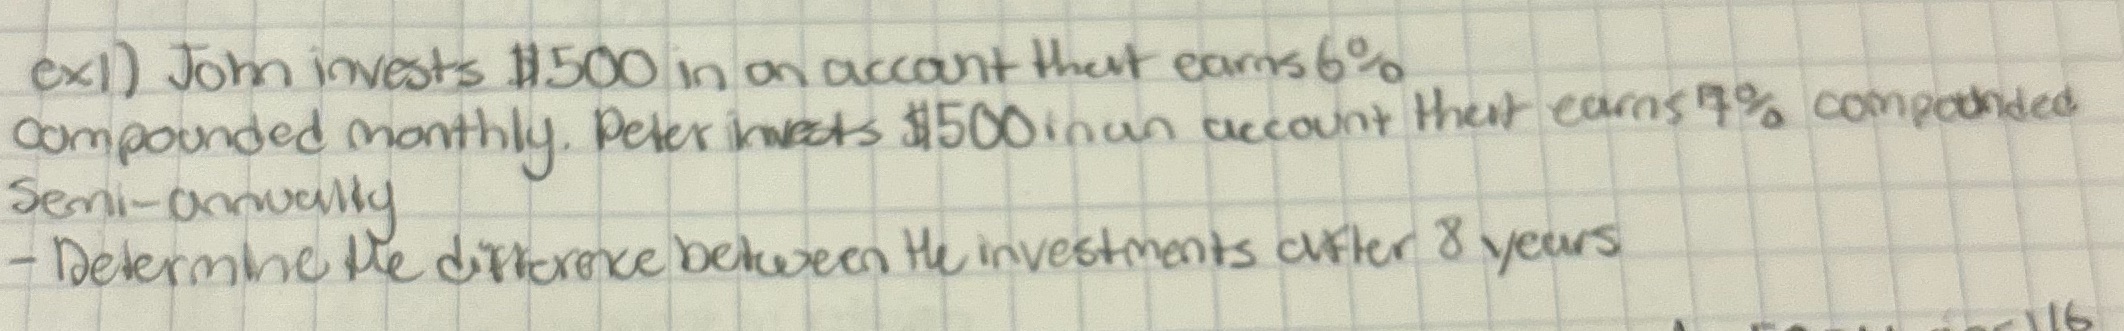 ex1) John invests $500 in an account that earns 6%
compounded monthly. Peter invests $500 in an account that earns 7% compounded
Semi-annually
- Determine the difference between the investments after 8 years